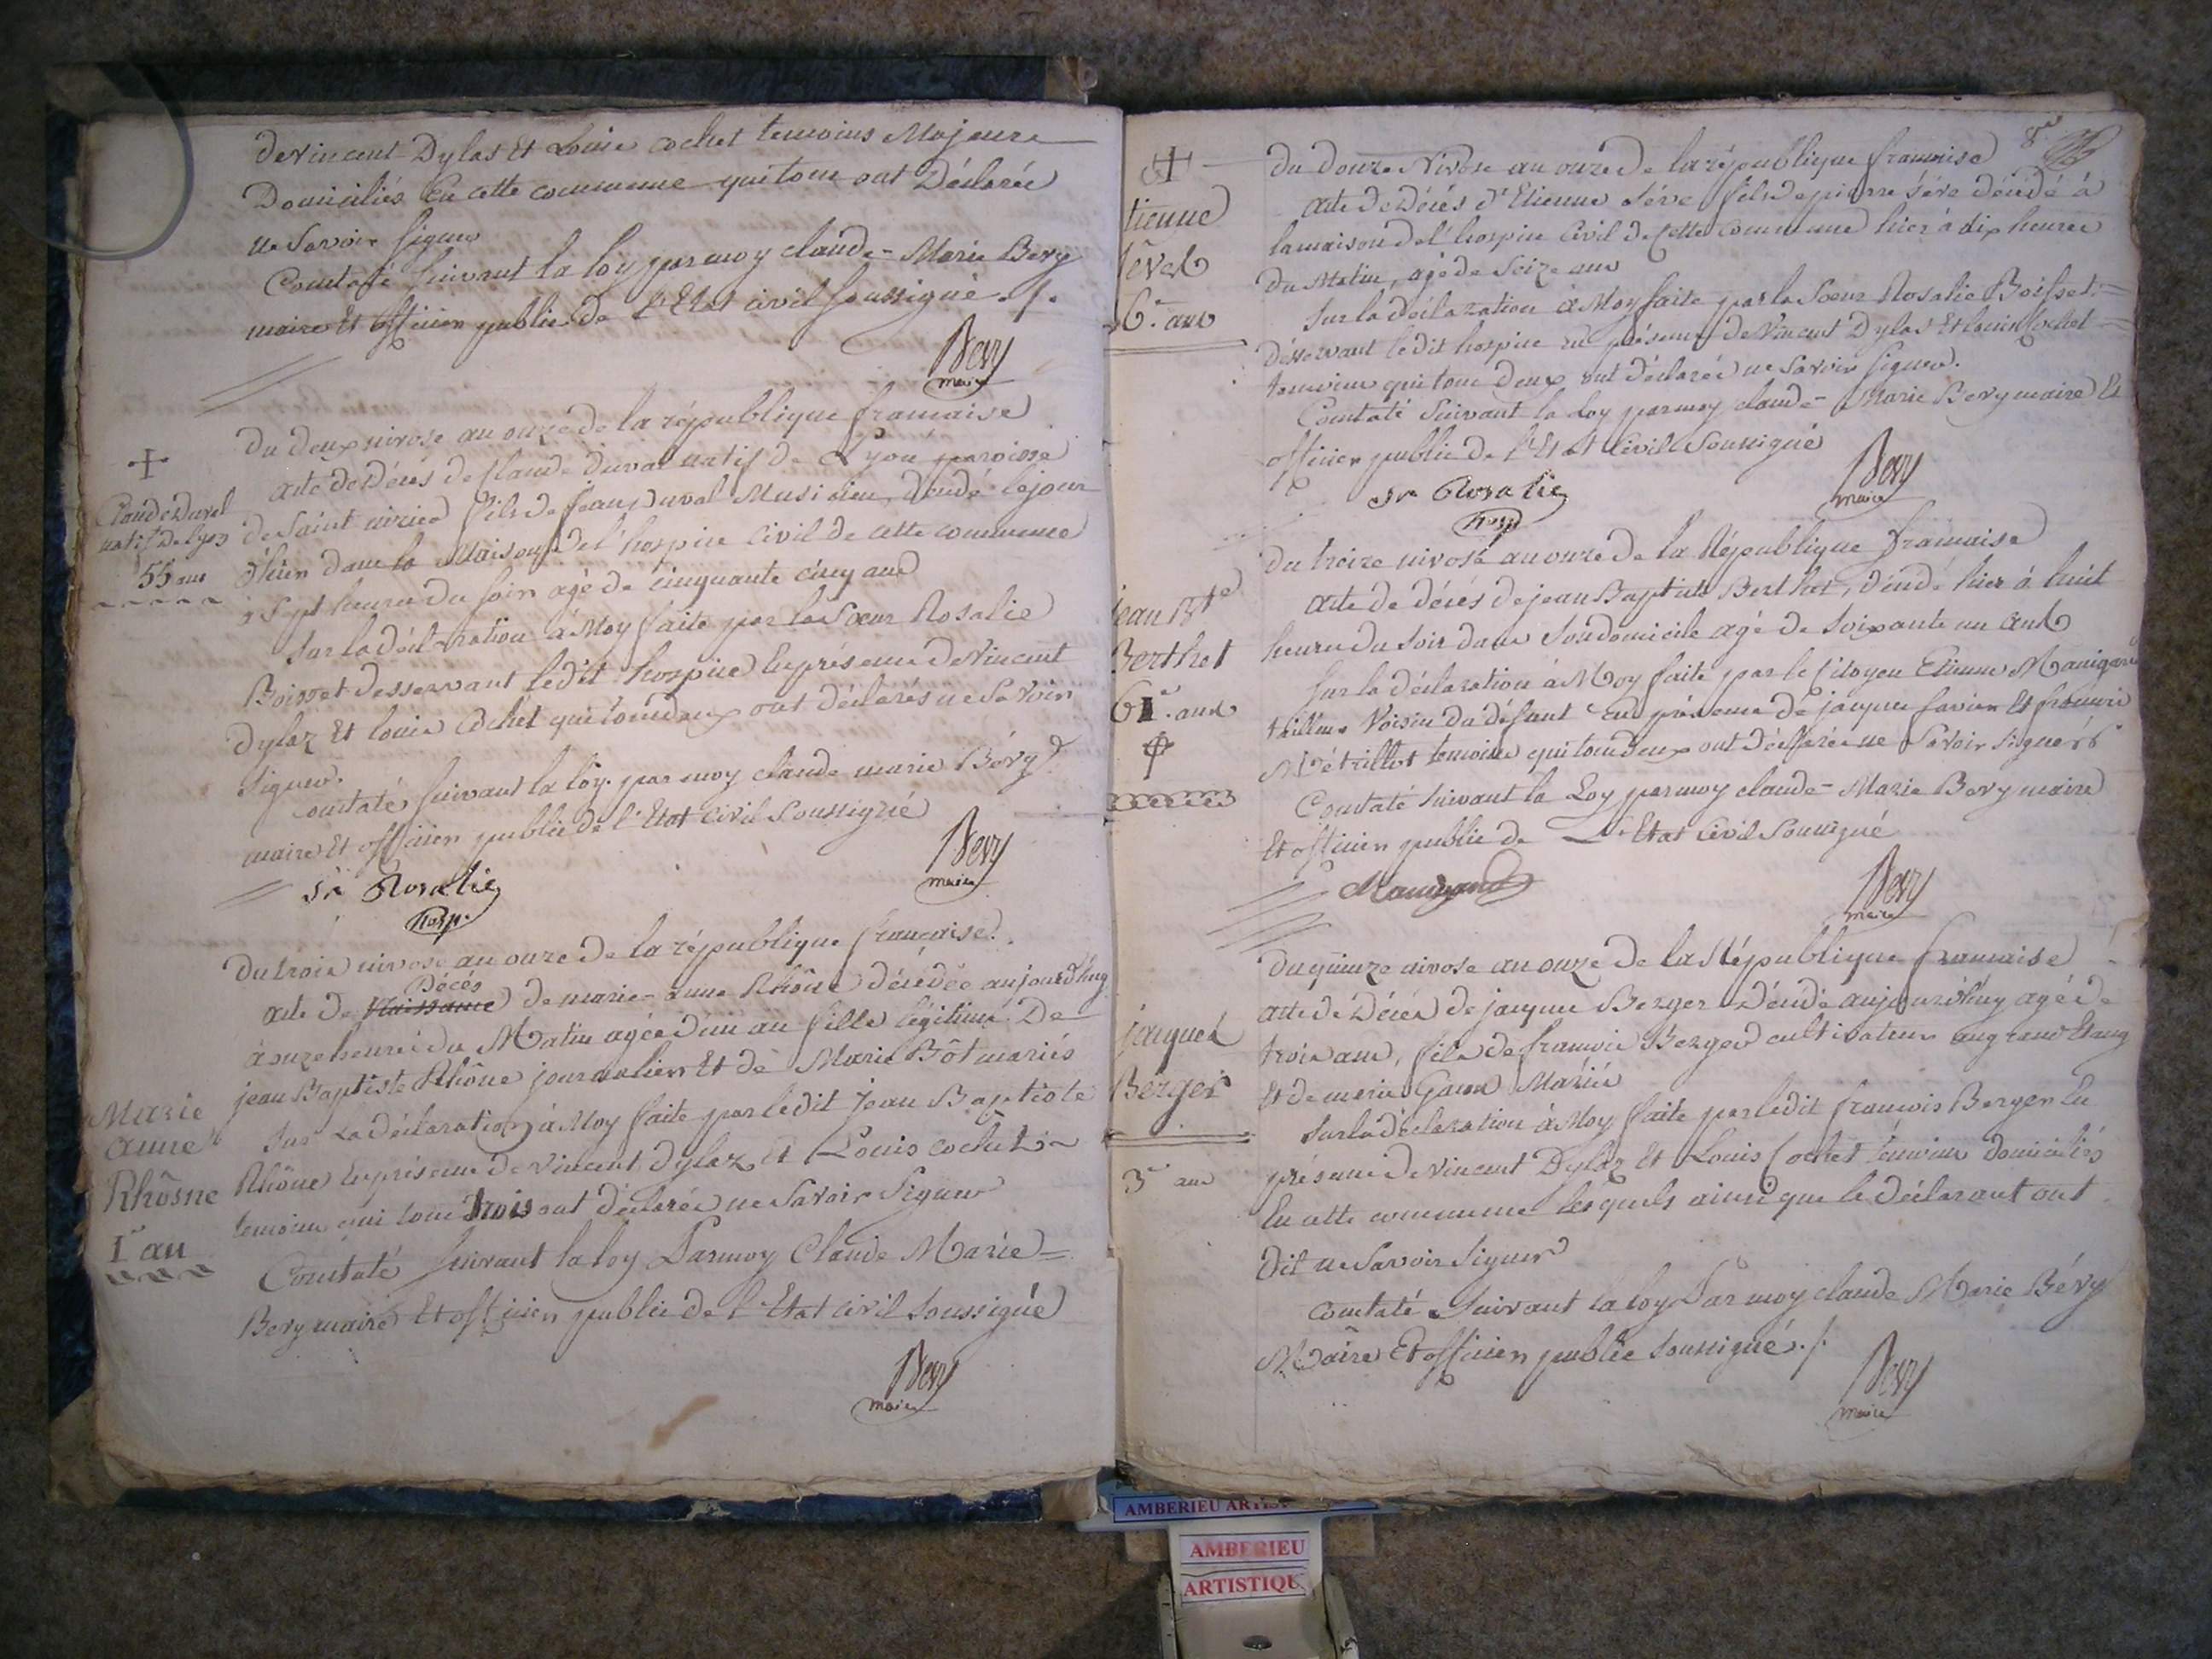 de Vincent Dylas Et Louis cochet temoins Majeurs
Domiciliés En cette commune qui tous ont Déclarée
ne Savoir Signer
Constaté suivant la loy par moy claude-Marie Bery
maire Et officier public de l'Etat civil soussigné ./.
Bery
maire
+
Claude Duval
natif de Lyon
55 ans
du deux nivose an onze de la république francaise
acte de Décés de Claude duval natif de Lyon paroisse
de Saint nizier fils de Jean Duval Musicien, décédé le jour
d'hier dans la Maison de l'hospice Civil de cette commune
à Sept heures du soir agé de cinquante cinq ans
Sur la déclaration à Moy faite par la Sœur Rosalie
Boisset desservant ledit hospice En présence de Vincent
Dylaz Et louis Cochet qui tous deux ont déclarés ne Savoir
Signer.
Constaté suivant la loy par moy claude marie Béry
maire Et officier public de l'Etat civil Soussigné
Sr Rosalie
hosp.
Bery
maire
Marie
anne
Rhôsne
1 an
du trois nivose an onze de la république française.
Décés
acte de Naissance de marie-anne Rhône décédée aujourd'huy
à onze heures du Matin agée d'un an fille légitime De
jean Baptiste Rhône journalier Et de Marie Bôt mariés
Sur La déclaration à Moy faite par ledit Jean Baptiste
Rhône En présence de Vincent Dylaz Et Louis cochet
temoins qui tous trois ont déclarée ne Savoir Signer
Constaté suivant la loy Par moy Claude Marie
Bery maire Et officier public de l'Etat civil Soussigné
Bery
maire
8
+
tienne
séve
6 ans
du douze Nivose an onze de la république francaise
acte de Décés d'Etienne séve fils de pierre séve décédé à
la maison de l'hospice Civil de Cette Commune hier à dix heures
du Matin, agé de Seize ans
Sur la déclaration à Moy faite par la Sœur Rosalie Boisset
désservant ledit hospice En présence de Vincent Dylas Et louis Cochet
temoins qui tous deux ont déclarée ne Savoir Signer.
Constaté Suivant la loy par moy claude-Marie Bery maire Et
officier public de l'Etat Civil Soussigné
Sr Rosalie
hosp
Bery
maire
jean Bte
Berthet
61. ans
du treize nivose an onze de la République francaise
acte de décés de jean Baptiste Berthet, décédé hier à huit
heures du Soir dans Son domicile agé de Soixante un ans
Sur la déclaration à Moy faite par le Citoyen Etienne Manigand
tailleur Voisin du défunt En présence de jacques favier Et francois
Métrillot temoins qui tous deux ont déclarée ne Savoir Signer
Constaté Suivant la Loy par moy claude-Marie Bery maire
Et officier public de L'Etat Civil Soussigné
Manigand
Bery
maire
jacques
Berger
3 ans
du quinze nivose an onze de la République francaise
acte de Décés de jacques Berger Décédé aujourd'huy agé de
trois ans, fils de francois Berger cultivateur au grand Etang
Et de marie Mariés
Sur la déclaration à Moy faite par ledit francois Berger En
présence de Vincent Dylaz Et Louis Cochet témoins domiciliés
En cette commune lesquels ainsi que le déclarant ont
dit ne Savoir Signer
constaté Suivant la loy Par moy claude Marie Béry
Maire Et officier public Soussigné ./.
Bery
maire
AMBERIEU
AMBERIEU
ARTISTIQU